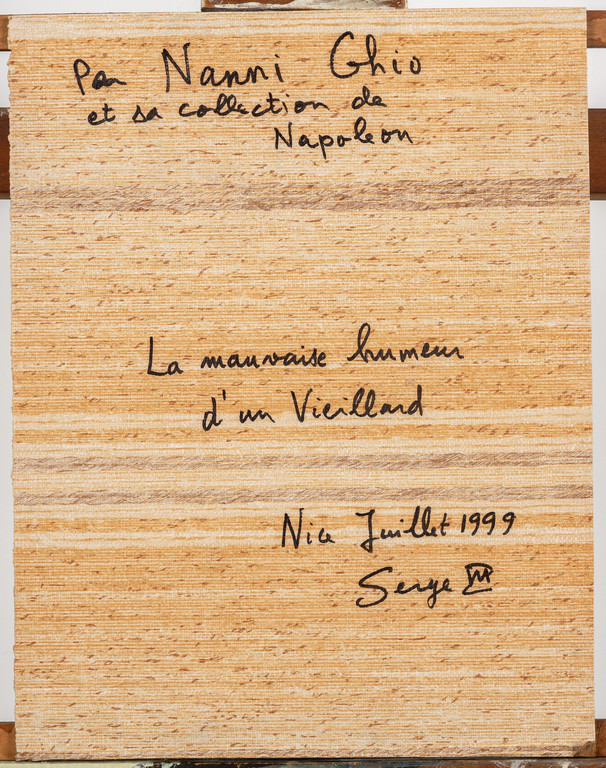 Pou Nanni Ghio
et sa collection de
Napoleon
La mauvaise humeur
d'un Vieillard
Nice Juillet 1999
Serge III